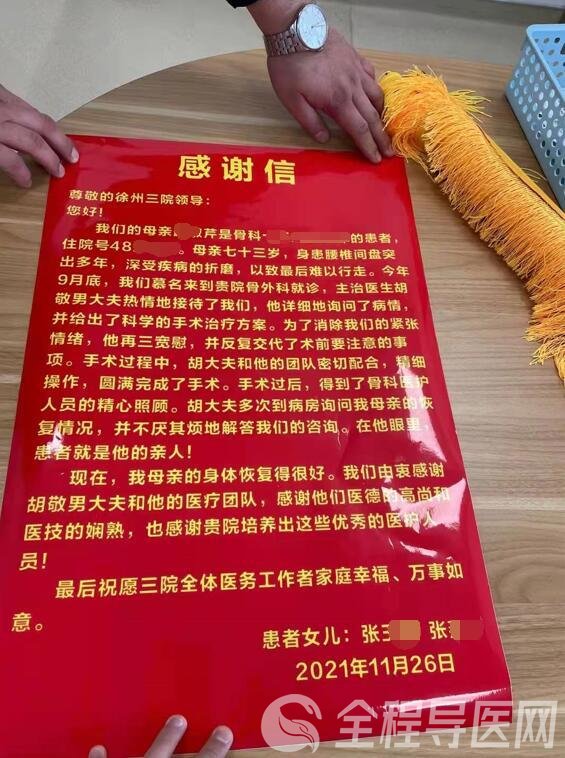 感谢信
尊敬的徐州三院领导:
您好!
我们的母亲 芹是骨科 的患者,
住院号48 。母亲七十三岁，身患腰椎间盘突
出多年，深受疾病的折磨，以致最后难以行走。今年
9月底，我们慕名来到贵院骨外科就诊，主治医生胡
敬男大夫热情地接待了我们，他详细地询问了病情，
并给出了科学的手术治疗方案。为了消除我们的紧张
情绪，他再三宽慰，并反复交代了术前要注意的事
项。手术过程中，胡大夫和他的团队密切配合，精细
操作，圆满完成了手术。手术过后，得到了骨科医护
人员的精心照顾。胡大夫多次到病房询问我母亲的恢
复情况，并不厌其烦地解答我们的咨询。在他眼里，
患者就是他的亲人!
现在，我母亲的身体恢复得很好。我们由衷感谢
胡敬男大夫和他的医疗团队，感谢他们医德的高尚和
医技的娴熟，也感谢贵院培养出这些优秀的医护人
员!
最后祝愿三院全体医务工作者家庭幸福、万事如
意。
患者女儿：张 张
2021年11月26日
全程导医网